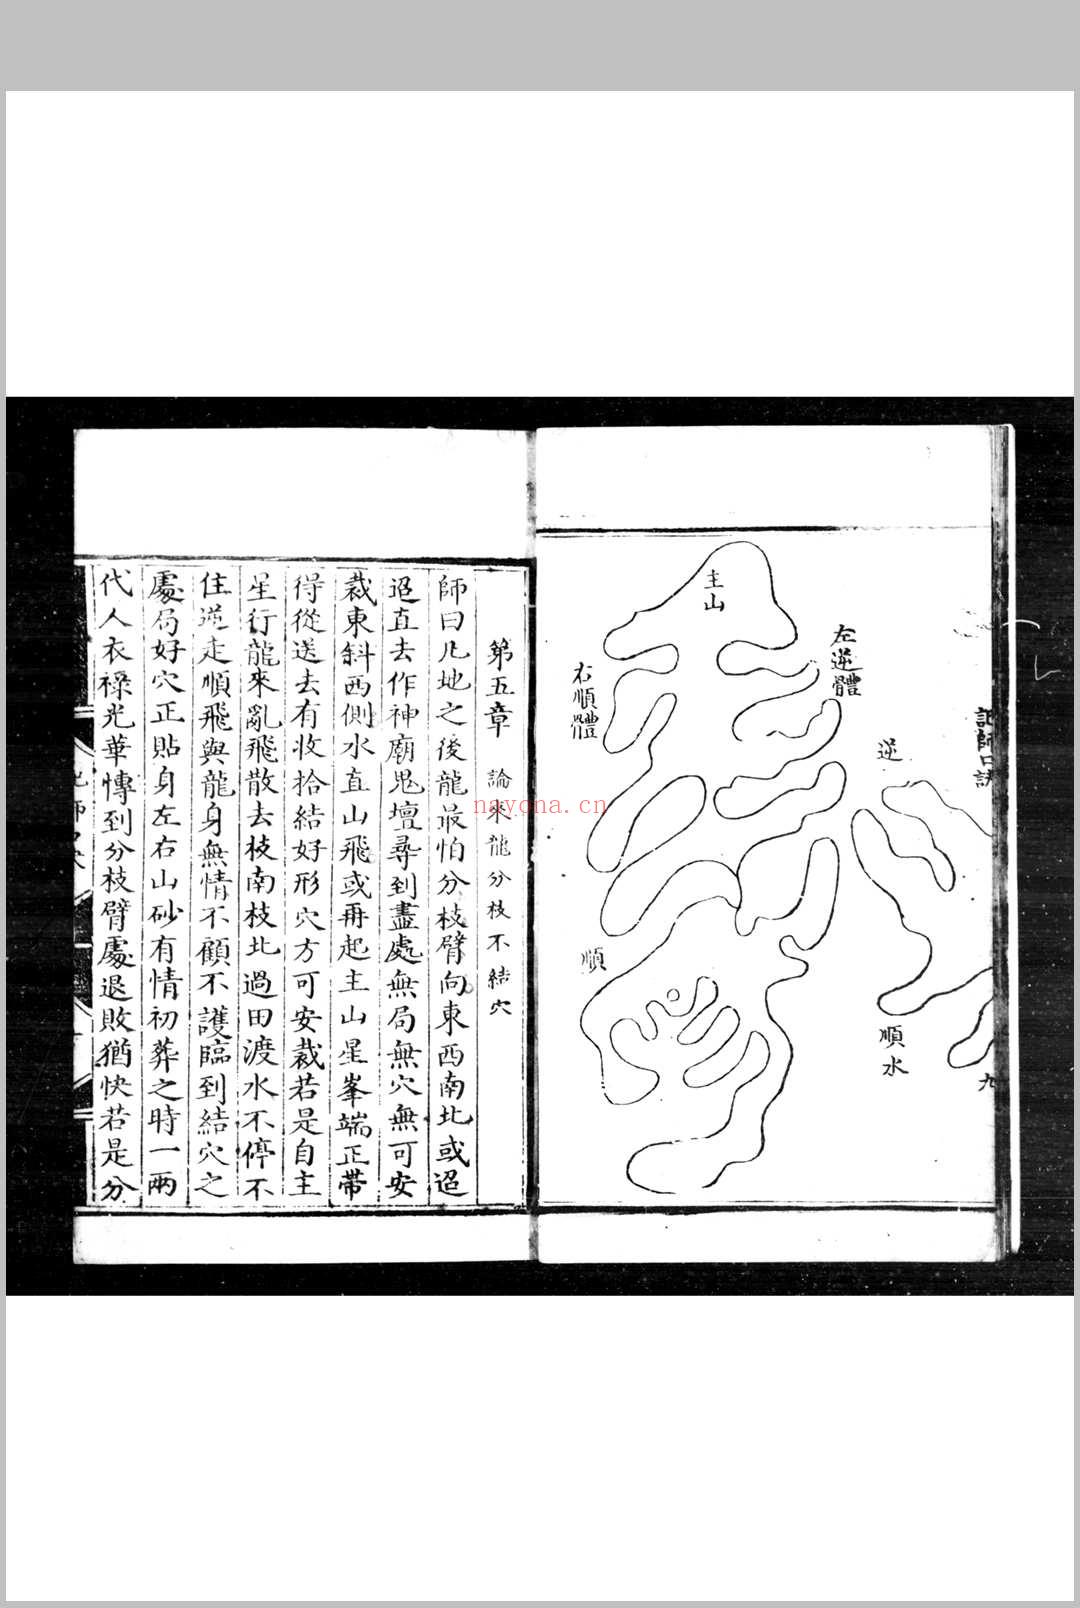 記師口訣
九
主山
左逆體
右順體
逆
順
順水
第五章 論來龍分枝不結穴
師曰凡地之後龍最怕分枝臂向東西南北或迢
迢直去作神廟鬼壇尋到盡處無局無穴無可安
裁東斜西側水直山飛或再起主山星峯端正帶
得從送去有收拾結好形穴方可安裁若是自主
星行龍來亂飛散去枝南枝北過田渡水不停不
住逆走順飛與龍身無情不顧不護臨到結穴之
處局好穴正貼身左右山砂有情初葬之時一兩
代人衣祿光華傳到分枝臂處退敗猶快若是分
nayona.cn